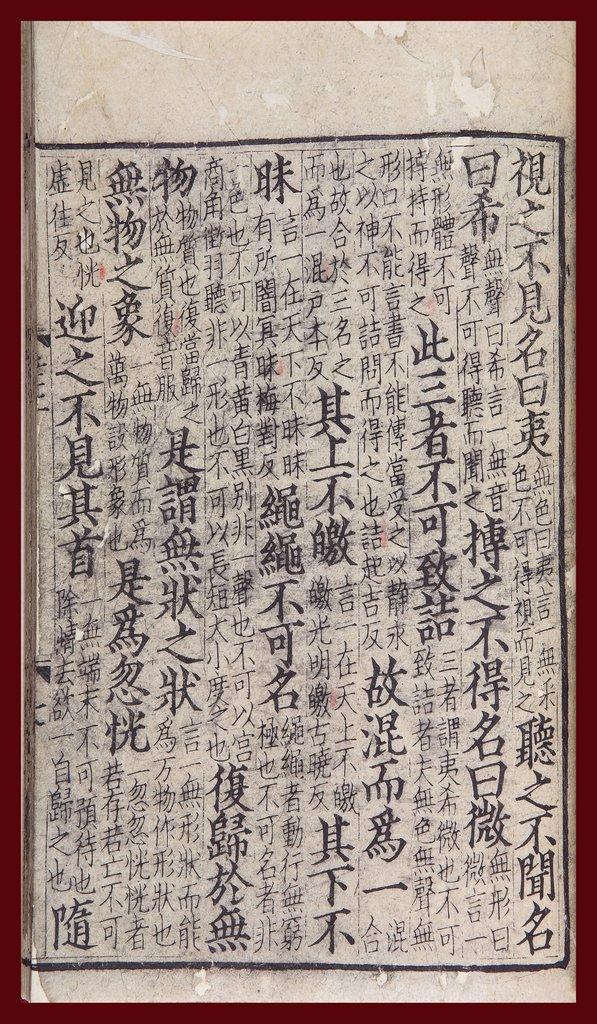 視之不見名曰夷無色曰夷言一無采色不可得視而見之聽之不聞名
曰希無聲曰希言一無音聲不可得聽而聞之摶之不得名曰微無形曰微言一
無形體不可摶持而得之此三者不可致詰三者謂夷希微也不可致詰者夫無色無聲無
形口不能言書不能傳當受之以靜求之以神不可詰問而得之也詰起吉反故混而爲一混合
也故合於三名之而爲一混戸本反其上不皦言一在天上不皦皦光明皦古曉反其下不
昧言一在天下不昧昧有所闇冥昧梅對反繩繩不可名繩繩者動行無窮極也不可名者非
一色也不可以青黄白黒別非一聲也不可以宫商角徵羽聽非一形也不可以長短大小度之也復歸於無
物物質也復當歸之於無質復音服是謂無狀之狀言一無形狀而能爲万物作形狀也
無物之象一無物質而爲萬物設形象也是爲忽恍一忽忽恍恍者若存若亡不可
見之也恍虚往反迎之不見其首一無端末不可預待也除情去欲一自歸之也隨